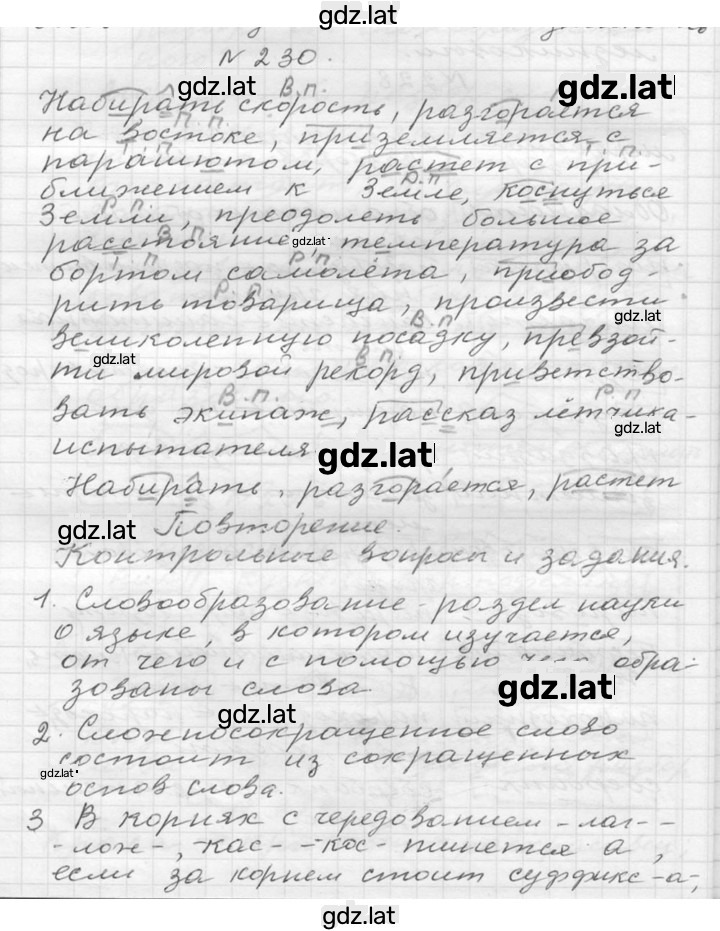 gdz.lat
N 230.
gdz.lat В.п. gdz.lat
Набирать скорость, разгорается
П.п.
на востоке, приземляется с
Т.п. Т.п.
парашютом, растет с при-
Р.п.
ближением к Земле, коснуться
Р.п.
Земли, преодолеть большое
В.п.
расстояние, gdz.lat температура за
Т.п. Р.п.
бортом самолёта, приобод-
Р.п.
рить товарища, произвести
В.п. gdz.lat
великолепную посадку, превзой-
gdz.lat В.п.
ти мировой рекорд, приветство-
В.п. Р.п
вать экипаж, рассказ лётчика-
gdz.lat
испытателя gdz.lat
Набирать, разгорается, растет
gdz.lat Повторение.
Контрольные вопросы и задания.
1. Словообразование - раздел науки
о языке, в котором изучается,
от чего и с помощью обра-
зованы слова gdz.lat
gdz.lat
2. Сложносокращенное слово
состоит из сокращенных
gdz.lat
основ слова.
3 В корнях с чередованием -лаг- -
-лож-, -кас- -кос- пишется а,
если за корнем стоит суффикс -а-,
gdz.lat